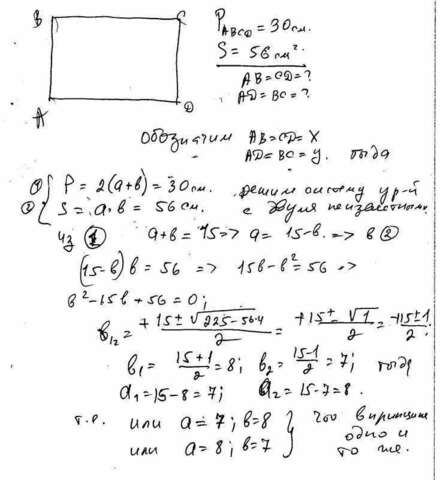 B C
A D
P_ABCD = 30 см.
S = 56 см².
AB = CD = ?
AD = BC = ?
Обозначим AB = CD = X
AD = BC = y. тогда
① { P = 2(a+b) = 30 см. решим систему ур-й
② { S = a·b = 56 см. с двумя неизвестными
из ① a+b = 15 => a = 15-b. => в ②
(15-b)b = 56 => 15b-b² = 56 =>
b²-15b+56 = 0;
b₁₂ = +15±√225-56·4 / 2 = +15±√1 / 2 = +15±1 / 2;
b₁ = 15+1 / 2 = 8; b₂ = 15-1 / 2 = 7; тогда
a₁ = 15-8 = 7; a₂ = 15-7 = 8.
т.е. или a = 7; b = 8 } что
или a = 8; b = 7 } одно и
то же.